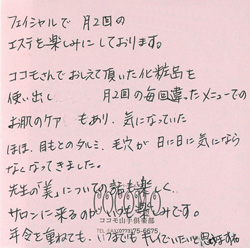 フェイシャルで 月2回の
エステを楽しみにしております。
ココモさんでおしえて頂いた化粧品を
使い出し 月2回の毎回違ったメニューでの
お肌のケア もあり、気になっていた
ほほ、目もとのタルミ、毛穴が 日に日に気になら
なくなってきました。
先生の「美」についての話も楽しく、
サロンに来るのが も楽しみです。
ココモ山手倶楽部
年令を重ねても、いつまでも キレイでいたいと思